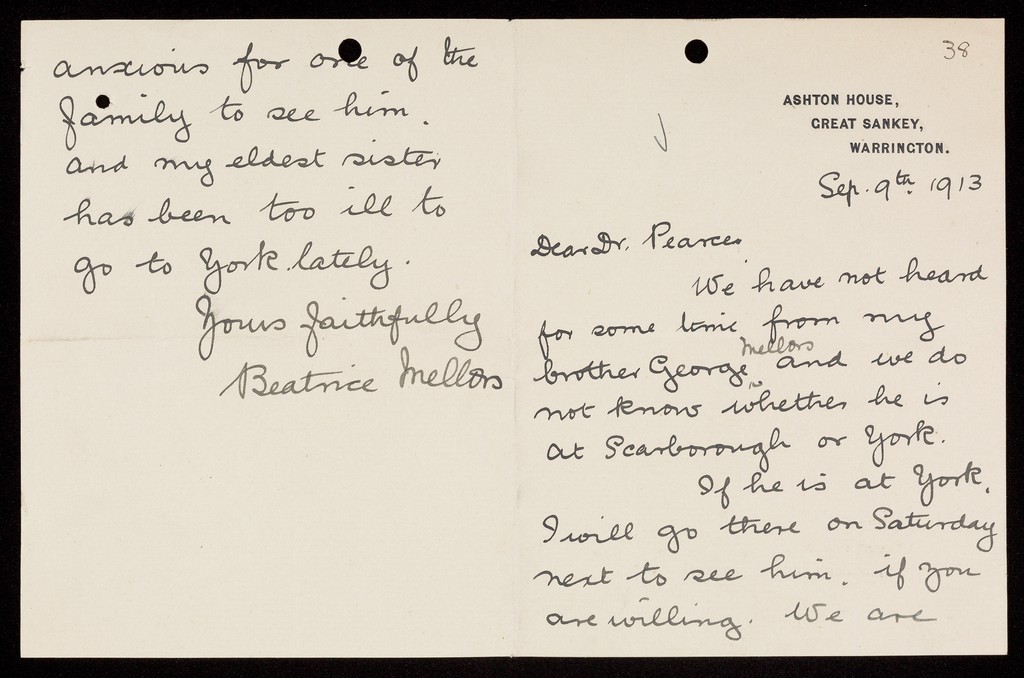 38
ASHTON HOUSE,
GREAT SANKEY,
WARRINGTON.
Sep. 9th. 1913
Dear Dr. Pearce.
We have not heard
for some time from my
brother George Mellors and we do
not know whether he is
at Scarborough or York.
If he is at York,
I will go there on Saturday
next to see him, if you
are willing. We are
anxious for one of the
family to see him.
and my eldest sister
has been too ill to
go to York lately.
Yours faithfully
Beatrice Mellors